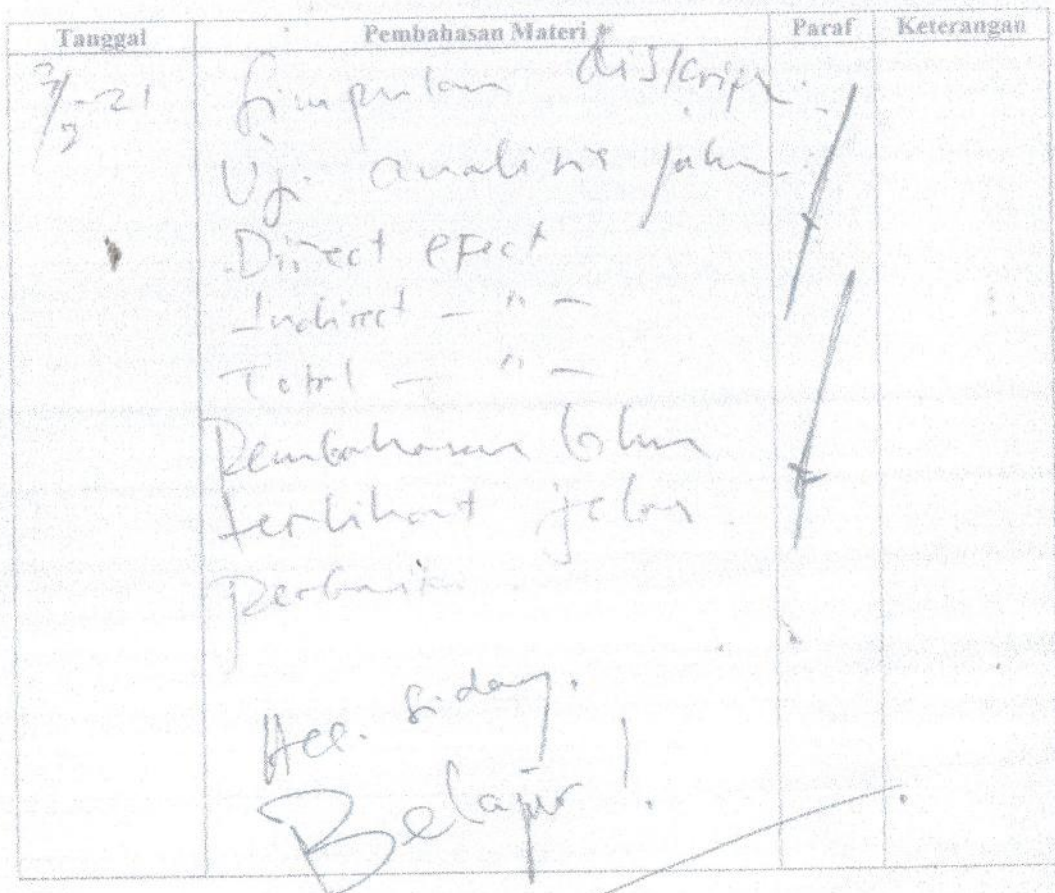 Tanggal Pembahasan Materi Paraf Keterangan
Simpulan diskrips.
Uji analisis jalur
Direct efect
Indirect — " —
Total — " —
Pembahasan belum
terlihat jelas
Perbaiki
Acc. Sidang.
Belajar!